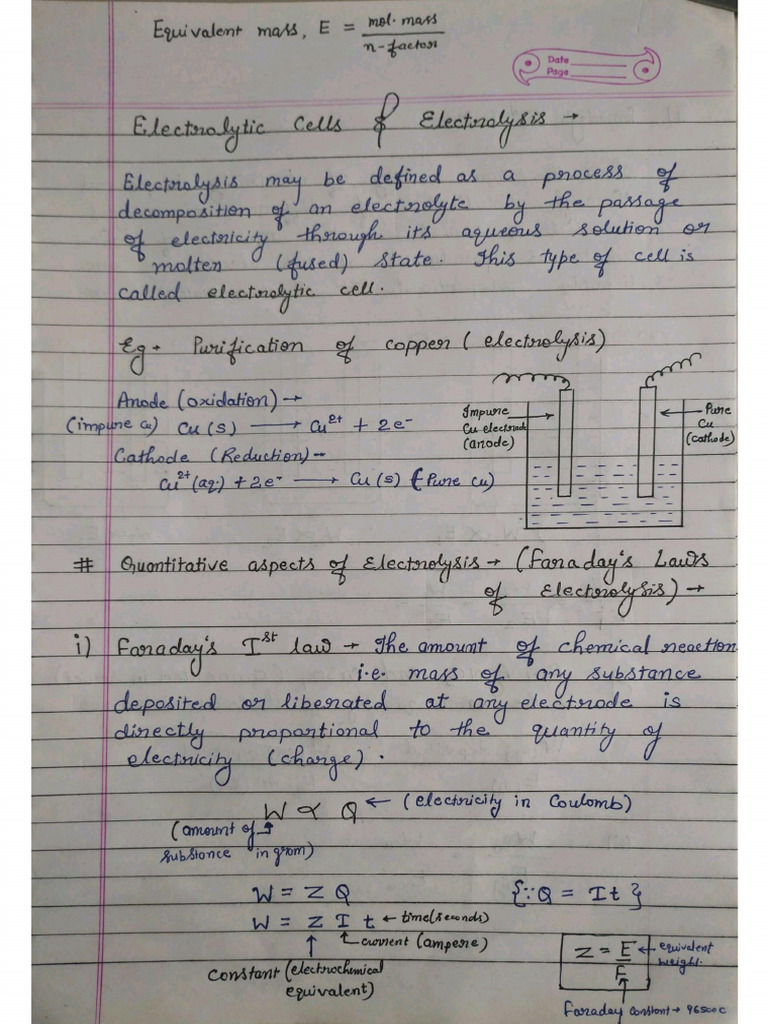 Equivalent mass, E = mol. mass / n-factor
Date
Page
Electrolytic Cells & Electrolysis →
Electrolysis may be defined as a process of
decomposition of an electrolyte by the passage
of electricity through its aqueous solution or
molten (fused) state. This type of cell is
called electrolytic cell.
Eg. Purification of copper (electrolysis)
Anode (oxidation) →
(impure Cu) Cu(s) ⟶ Cu²⁺ + 2e⁻
Cathode (Reduction) –
Cu²⁺(aq.) + 2e⁻ ⟶ Cu(s) (Pure Cu)
Impure
Cu electrode
(anode)
Pure
Cu
(cathode)
# Quantitative aspects of Electrolysis → (Faraday's Laws
of Electrolysis) →
i) Faraday's Iˢᵗ law → The amount of chemical reaction
i.e. mass of any substance
deposited or liberated at any electrode is
directly proportional to the quantity of
electricity (charge).
W ∝ Q ← (electricity in Coulomb)
(amount of
substance in gram)
W = Z Q {∵Q = It}
W = Z I t ← time(seconds)
current (ampere)
constant (electrochemical
equivalent)
Z = E / F ← equivalent
weight.
Faraday constant → 96500C